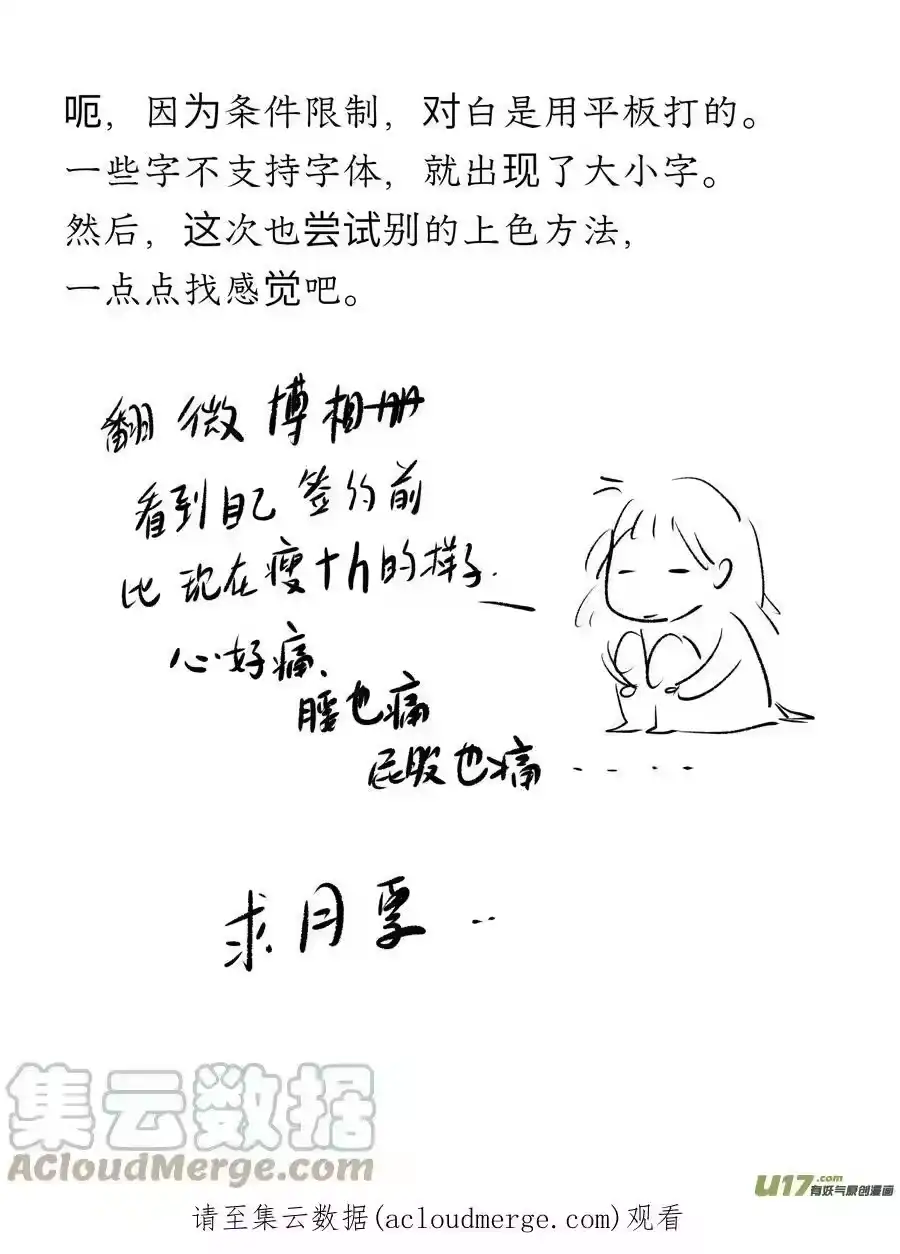 呃，因为条件限制，对白是用平板打的。
一些字不支持字体，就出现了大小字。
然后，这次也尝试别的上色方法，
一点点找感觉吧。
翻微博相册
看到自己签约前
比现在瘦十斤的样子.
心好痛.
腰也痛
屁股也痛 . . . . .
求月票 ..
集云数据
ACloudMerge.com
U17.com
有妖气原创漫画
请至集云数据(acloudmerge.com)观看